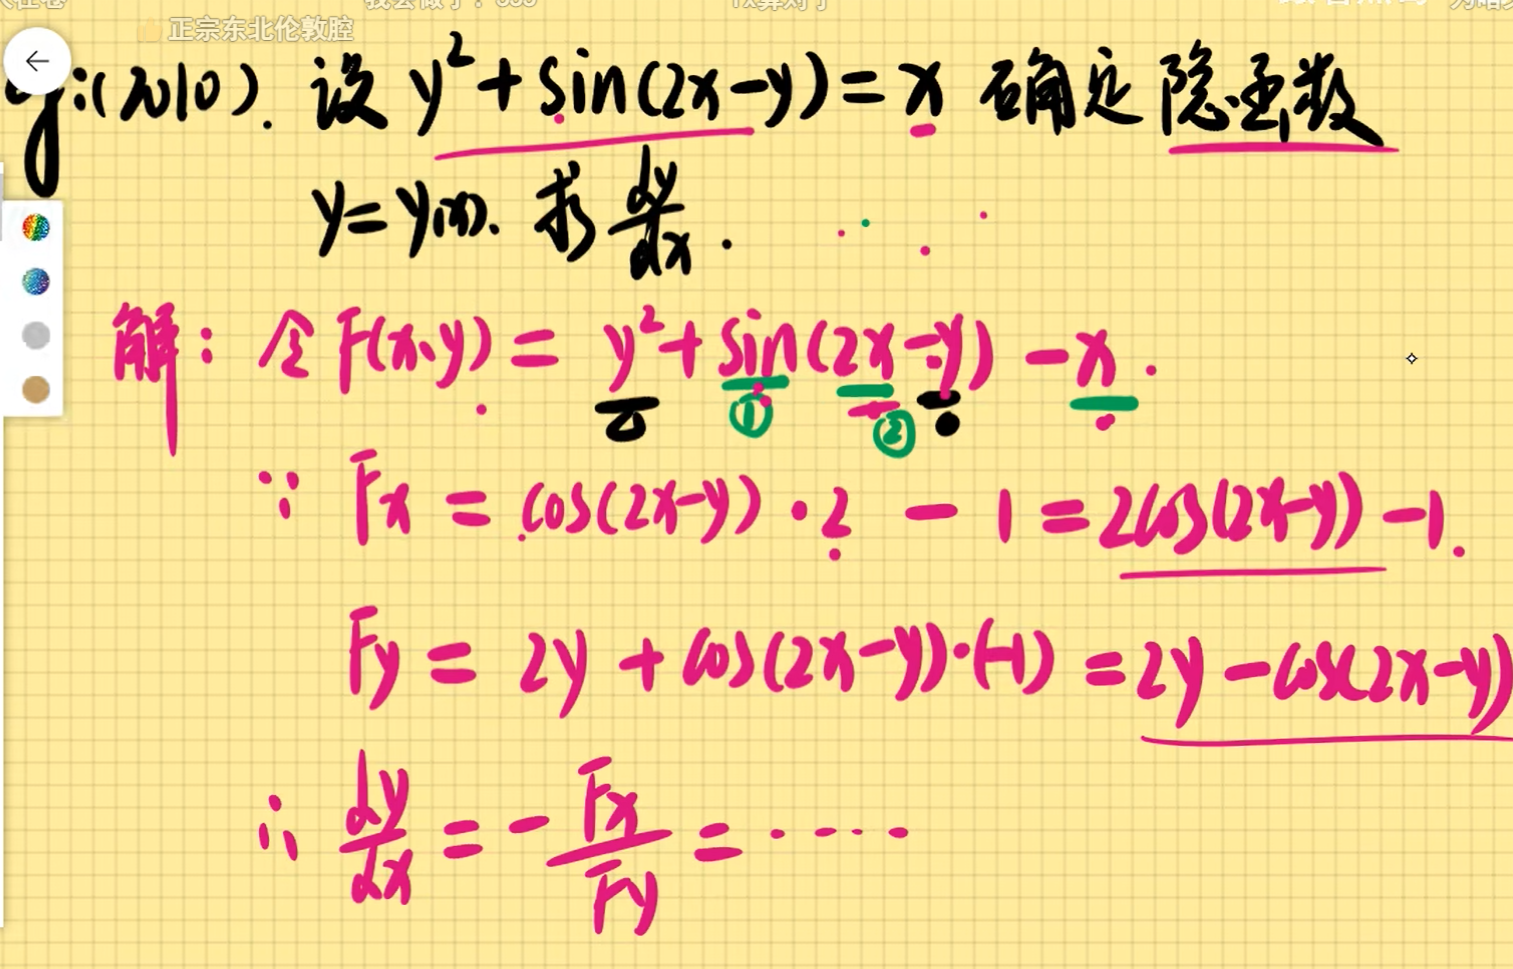 正宗东北伦敦腔
eg:(2010). 设 y²+sin(2x-y)=x 确定隐函数
y=y(x). 求 dy/dx.
解: 令 F(x,y) = y²+sin(2x-y) -x.
① ②
∵ Fx = cos(2x-y)·2 - 1 = 2cos(2x-y) -1.
Fy = 2y + cos(2x-y)·(-1) = 2y - cos(2x-y)
∴ dy/dx = - Fx/Fy = ····